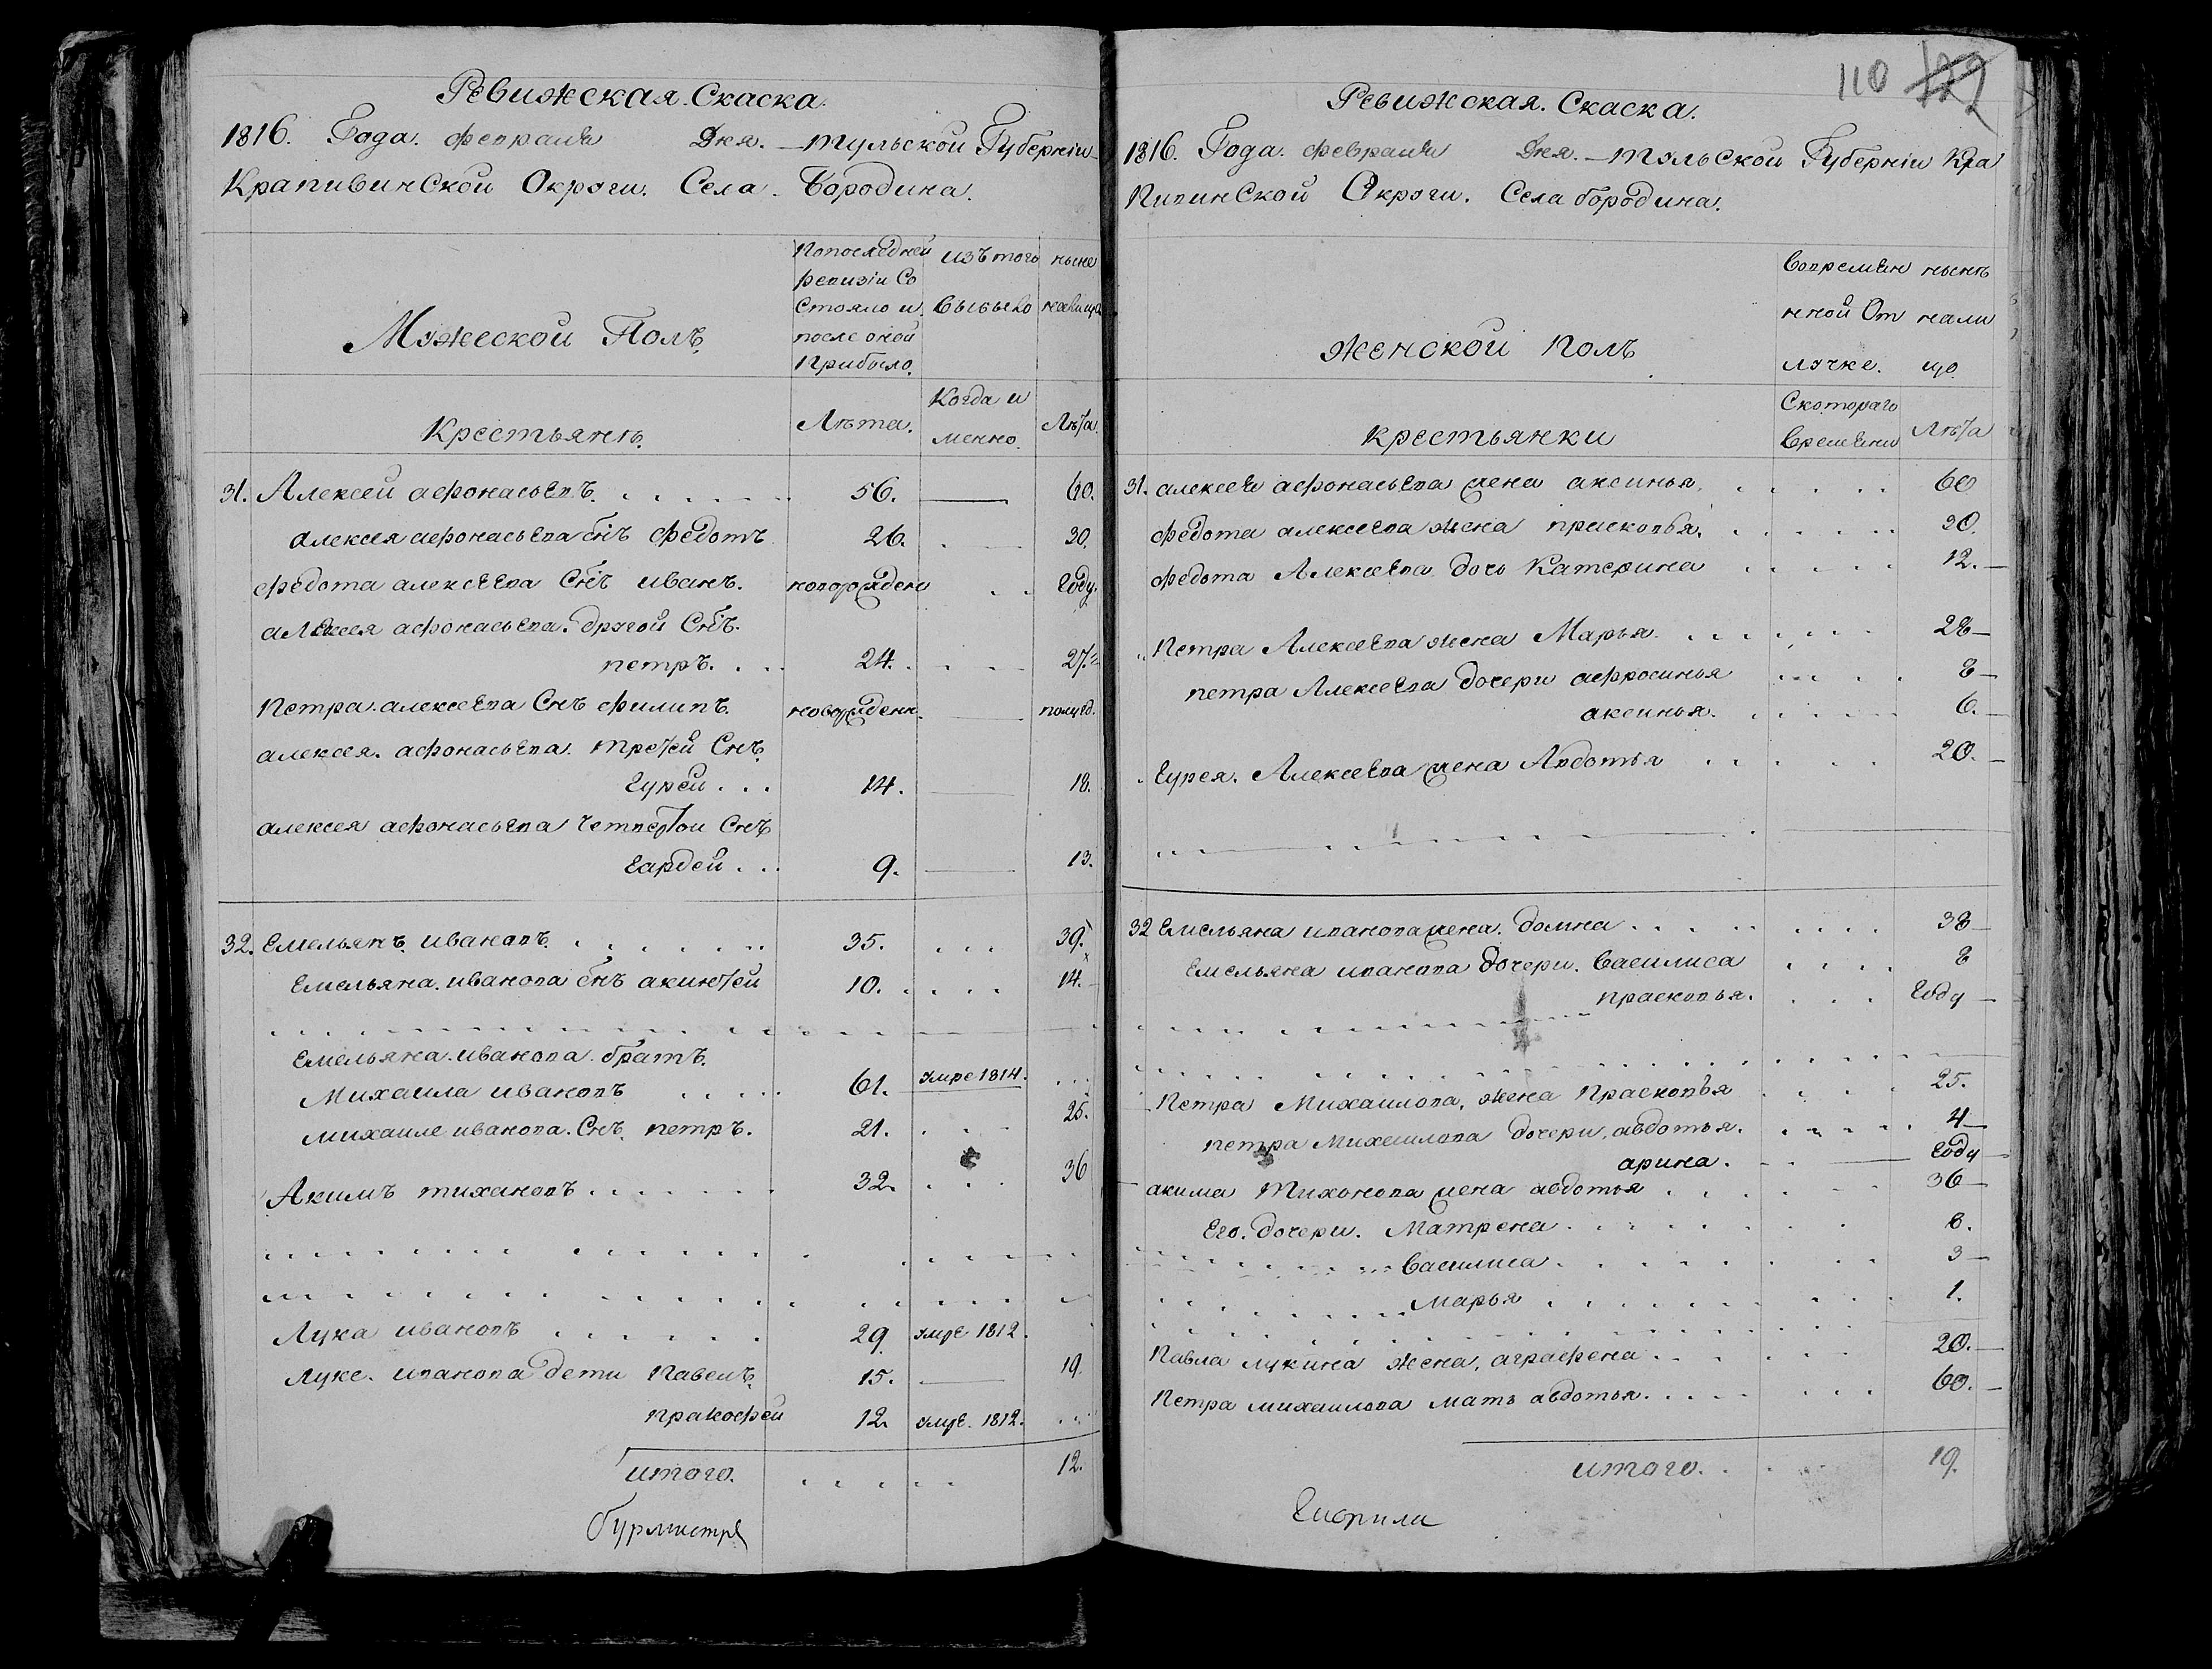 Ревижская Скаска.
1816. Года. февраля Дня. тульской Губерніи
Крапивинской Округи. Села Бородина.
Мужеской Полъ.
Попоследней ревизіи Состояло и после оной Прибыло.
изъ того выбыло
ныне налицо
Крестьянъ.
Лѣта.
Когда именно.
Лѣта.
31. Алексей афонасьевъ. 56. 60.
алексея афонасьева снъ федотъ 26. 30.
федота алексеева Снъ иванъ. новорожденъ Году.
алексея афонасьева. другой Снъ.
петръ. 24. 27.
Петра алексеева Снъ филипъ. новорожден. полугод.
алексея. афонасьева. третей Снъ.
Гурей 14. 18.
алексея афонасьева Четвертой Снъ
Гардей 9. 13.
32. Емельянъ ивановъ 35. 39.
Емельяна. иванова Снъ акинтей 10. 14.
Емельяна. иванова. братъ.
Михаила ивановъ 61. умре 1814.
михаиле иванова. Снъ. петръ. 21. 25.
Акимъ тихановъ 32. 36
Лука ивановъ 29 умре 1812.
луке. иванова дети Павелъ. 15. 19.
пракофей 12 умре. 1812.
итого. 12.
бурмистръ
110 122
Ревижская. Скаска.
1816. Года. февраля Дня. тульской Губерніи Кра
пивинской Округи. Села бородина.
Женской полъ
Вовременнной Отлучке.
нынѣ налицо.
крестьянки
Скотораго Времени
Лѣта
31. алексея афонасьева жена аксинья. 60
федота алексеева жена прасковья. 30.
федота Алексеева дочь Катерина 12.
Петра Алексеева жена Марья. 28
петра Алексеева дочери афросинья 8
аксинья. 6.
Гурея. Алексеева жена Авдотья 20.
32 Емельяна иванова жена. домна 38
Емельяна иванова дочери. Василиса 8
прасковья. Году
Петра Михаилова. жена Прасковья 25.
петра Михаилова дочери. авдотья. 4
арина. Году
акима Тихонова жена авдотья 36
Его. дочери. Матрена 8.
Василиса 3
марья 1.
Павла лукина жена. аграфена 20.
Петра михаилова мать авдотья. 60.
итого. 19.
Гаврила